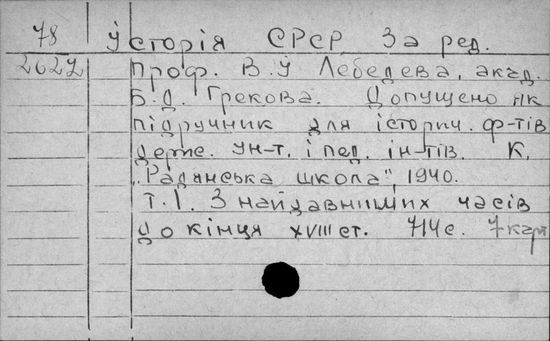 78 Історія СРСР За ред.
26272 проф. В.У Лебедєва, акад.
Б.Д. Грекова. Допущено як
підручник для історич. ф-тів
держ. ун-т. і пед. ін-тів. К.
"Радянська школа", 1940.
Т.І. З найдавніших часів
до кінця XVIII ст. 714с. 7 карт